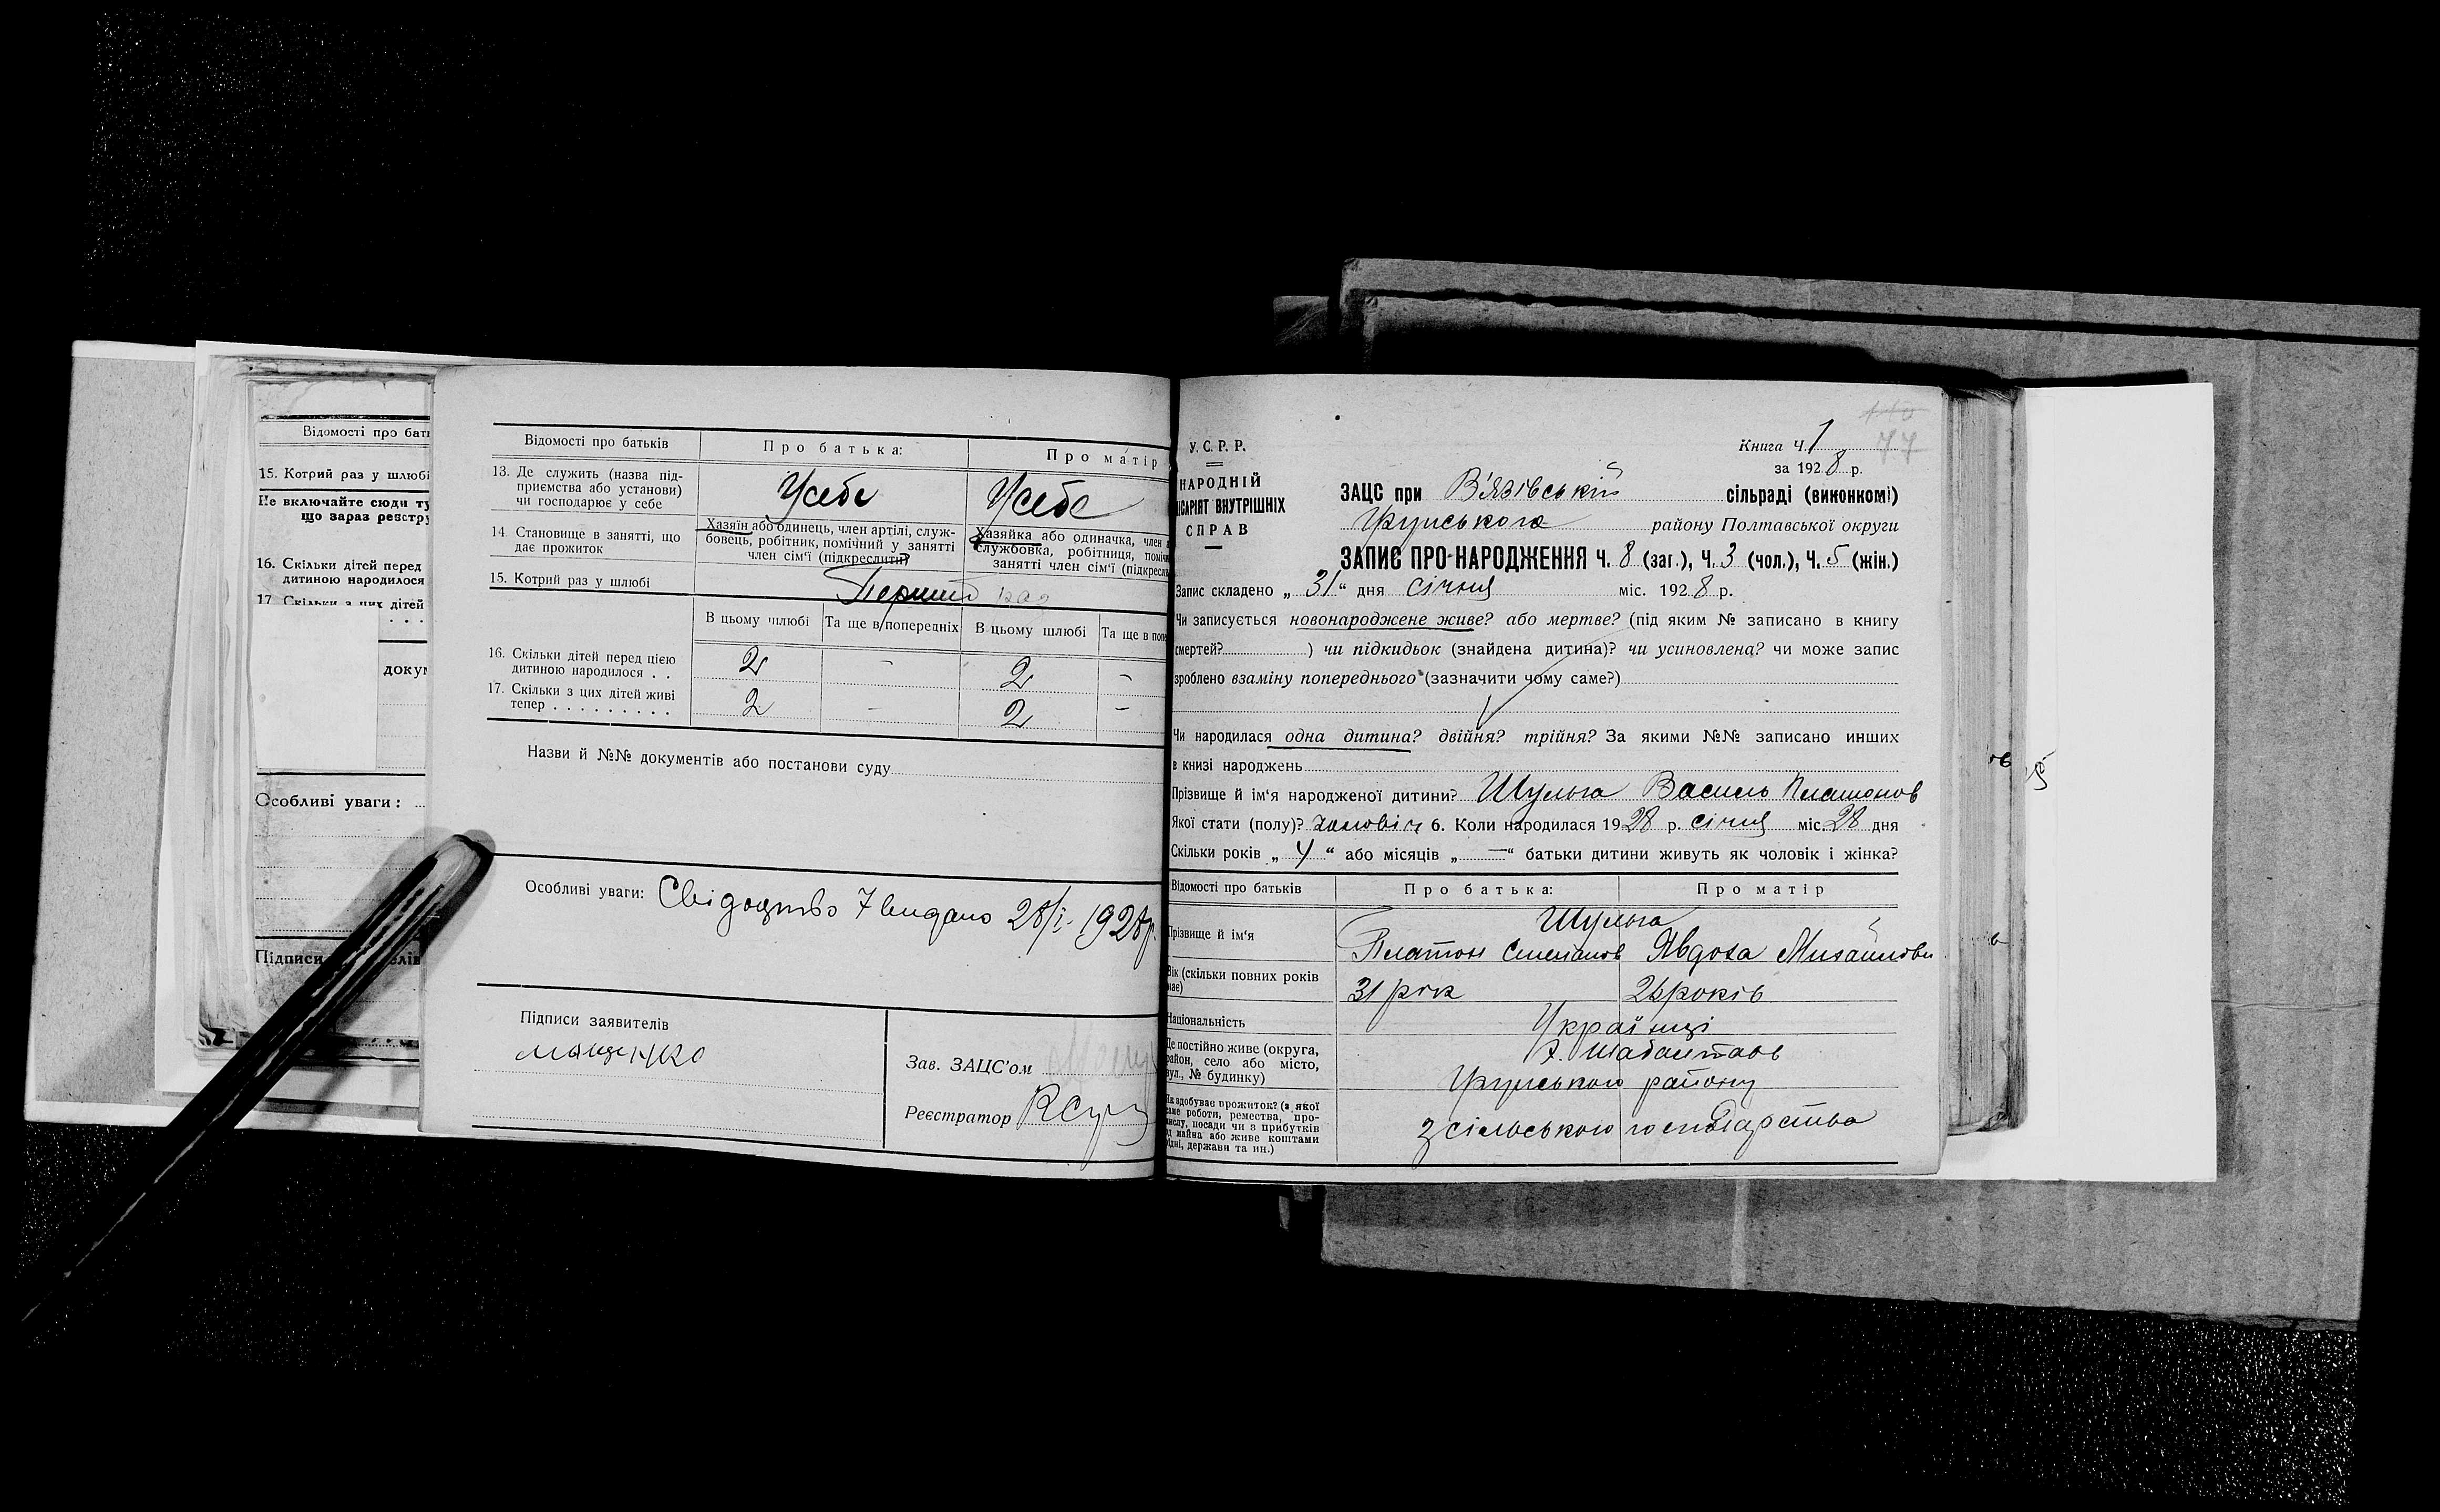 Відомості про бать
15. Котрий раз у шлюбі
Не включайте сюди ту
що зараз реєстру
16. Скільки дітей перед
дитиною народилося
17. Скільки з цих дітей
. . .
докум
Особливі уваги:
Підписи
Відомості про батьків
Про батька:
Про матір
13. Де служить (назва під-
приємства або установи)
чи господарює у себе
Усебе
Усебе
14. Становище в занятті, що
дає прожиток
Хазяїн або одинець, член артілі, служ-
бовець, робітник, помічний у занятті
член сім'ї (підкреслити)
Хазяйка або одиначка, член
службовка, робітниця, поміч
занятті член сім'ї (підкресл
15. Котрий раз у шлюбі
Перший раз
В цьому шлюбі
Та ще в попередніх
В цьому шлюбі
Та ще в попе
16. Скільки дітей перед цією
дитиною народилося . .
2 - 2 -
17. Скільки з цих дітей живі
тепер . . . . . . . . .
2 - 2 -
Назви й №№ документів або постанови суду
Особливі уваги: Свідоцтво 7 видано 28/I- 1928р.
Підписи заявителів
Мащенко
Зав. ЗАЦС'ом
Реєстратор
У.С.Р.Р.
НАРОДНІЙ
ІСАРІЯТ ВНУТРІШНІХ
СПРАВ
77
Книга Ч. 1
за 1928 р.
ЗАЦС при В'язівській сільраді (виконкомі)
району Полтавської округи
ЗАПИС ПРО НАРОДЖЕННЯ Ч. 8 (заг.), Ч. 3 (чол.), Ч. 5 (жін.)
Запис складено „ 31 " дня січня міс. 1928 р.
Чи записується новонароджене живе? або мертве? (під яким № записано в книгу
смертей? ) чи підкидьок (знайдена дитина)? чи усиновлена? чи може запис
зроблено взаміну попереднього (зазначити чому саме?)
Чи народилася одна дитина? двійня? трійня? За якими №№ записано инших
в книзі народжень
Прізвище й ім'я народженої дитини? Шульга Василь Платонов
Якої стати (полу)? чоловіч 6. Коли народилася 1928 р. січня міс. 28 дня
Скільки років „ 4 " або місяців „ — " батьки дитини живуть як чоловік і жінка?
Відомості про батьків
Про батька:
Про матір
Прізвище й ім'я
Шульга
Платон Степанов Явдоха Михайлови
Вік (скільки повних років
має)
31 рік
26 років
Національність
Українці
Де постійно живе (округа,
район, село або місто,
вул., № будинку)
х.
району
Як здобуває прожиток? (з якої
саме роботи, ремества, про-
мислу, посади чи з прибутків
од майна або живе коштами
рідні, держави та ин.)
з сільського господарства